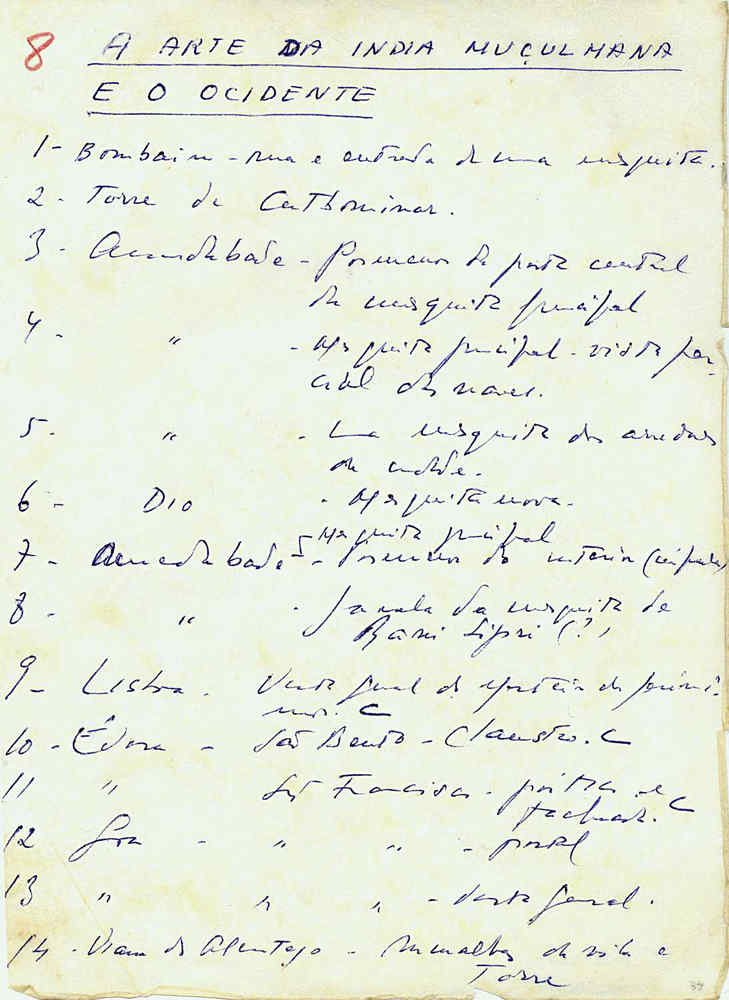 8 A ARTE DA INDIA MUÇULMANA
E O OCIDENTE
1 - Bombaim - rua e entrada de uma mesquita.
2 - Torre de
3 - Amedabade - Pormenor da porta central
da mesquita principal
4 - " - Mesquita principal - vista par-
cial das naves.
5 - " - Uma mesquita dos arredores
da cidade.
6 - DIO - Mesquita nova.
Mesquita principal
7 - Amedabade - Pormenor do interior (cúpula)
8 - " - Janela da mesquita de
Rani Sipri (?)
9 - Lisboa - Vista geral do mosteiro dos Jeróni-
mos. C
10 - Évora - São Bento - Claustro. C
11 " São Francisco - pórtico e
fachada. C
12 Goa - " " - portal
13 " " " - vista geral.
14 - Viana do Alentejo - Muralhas da vila e
Torre